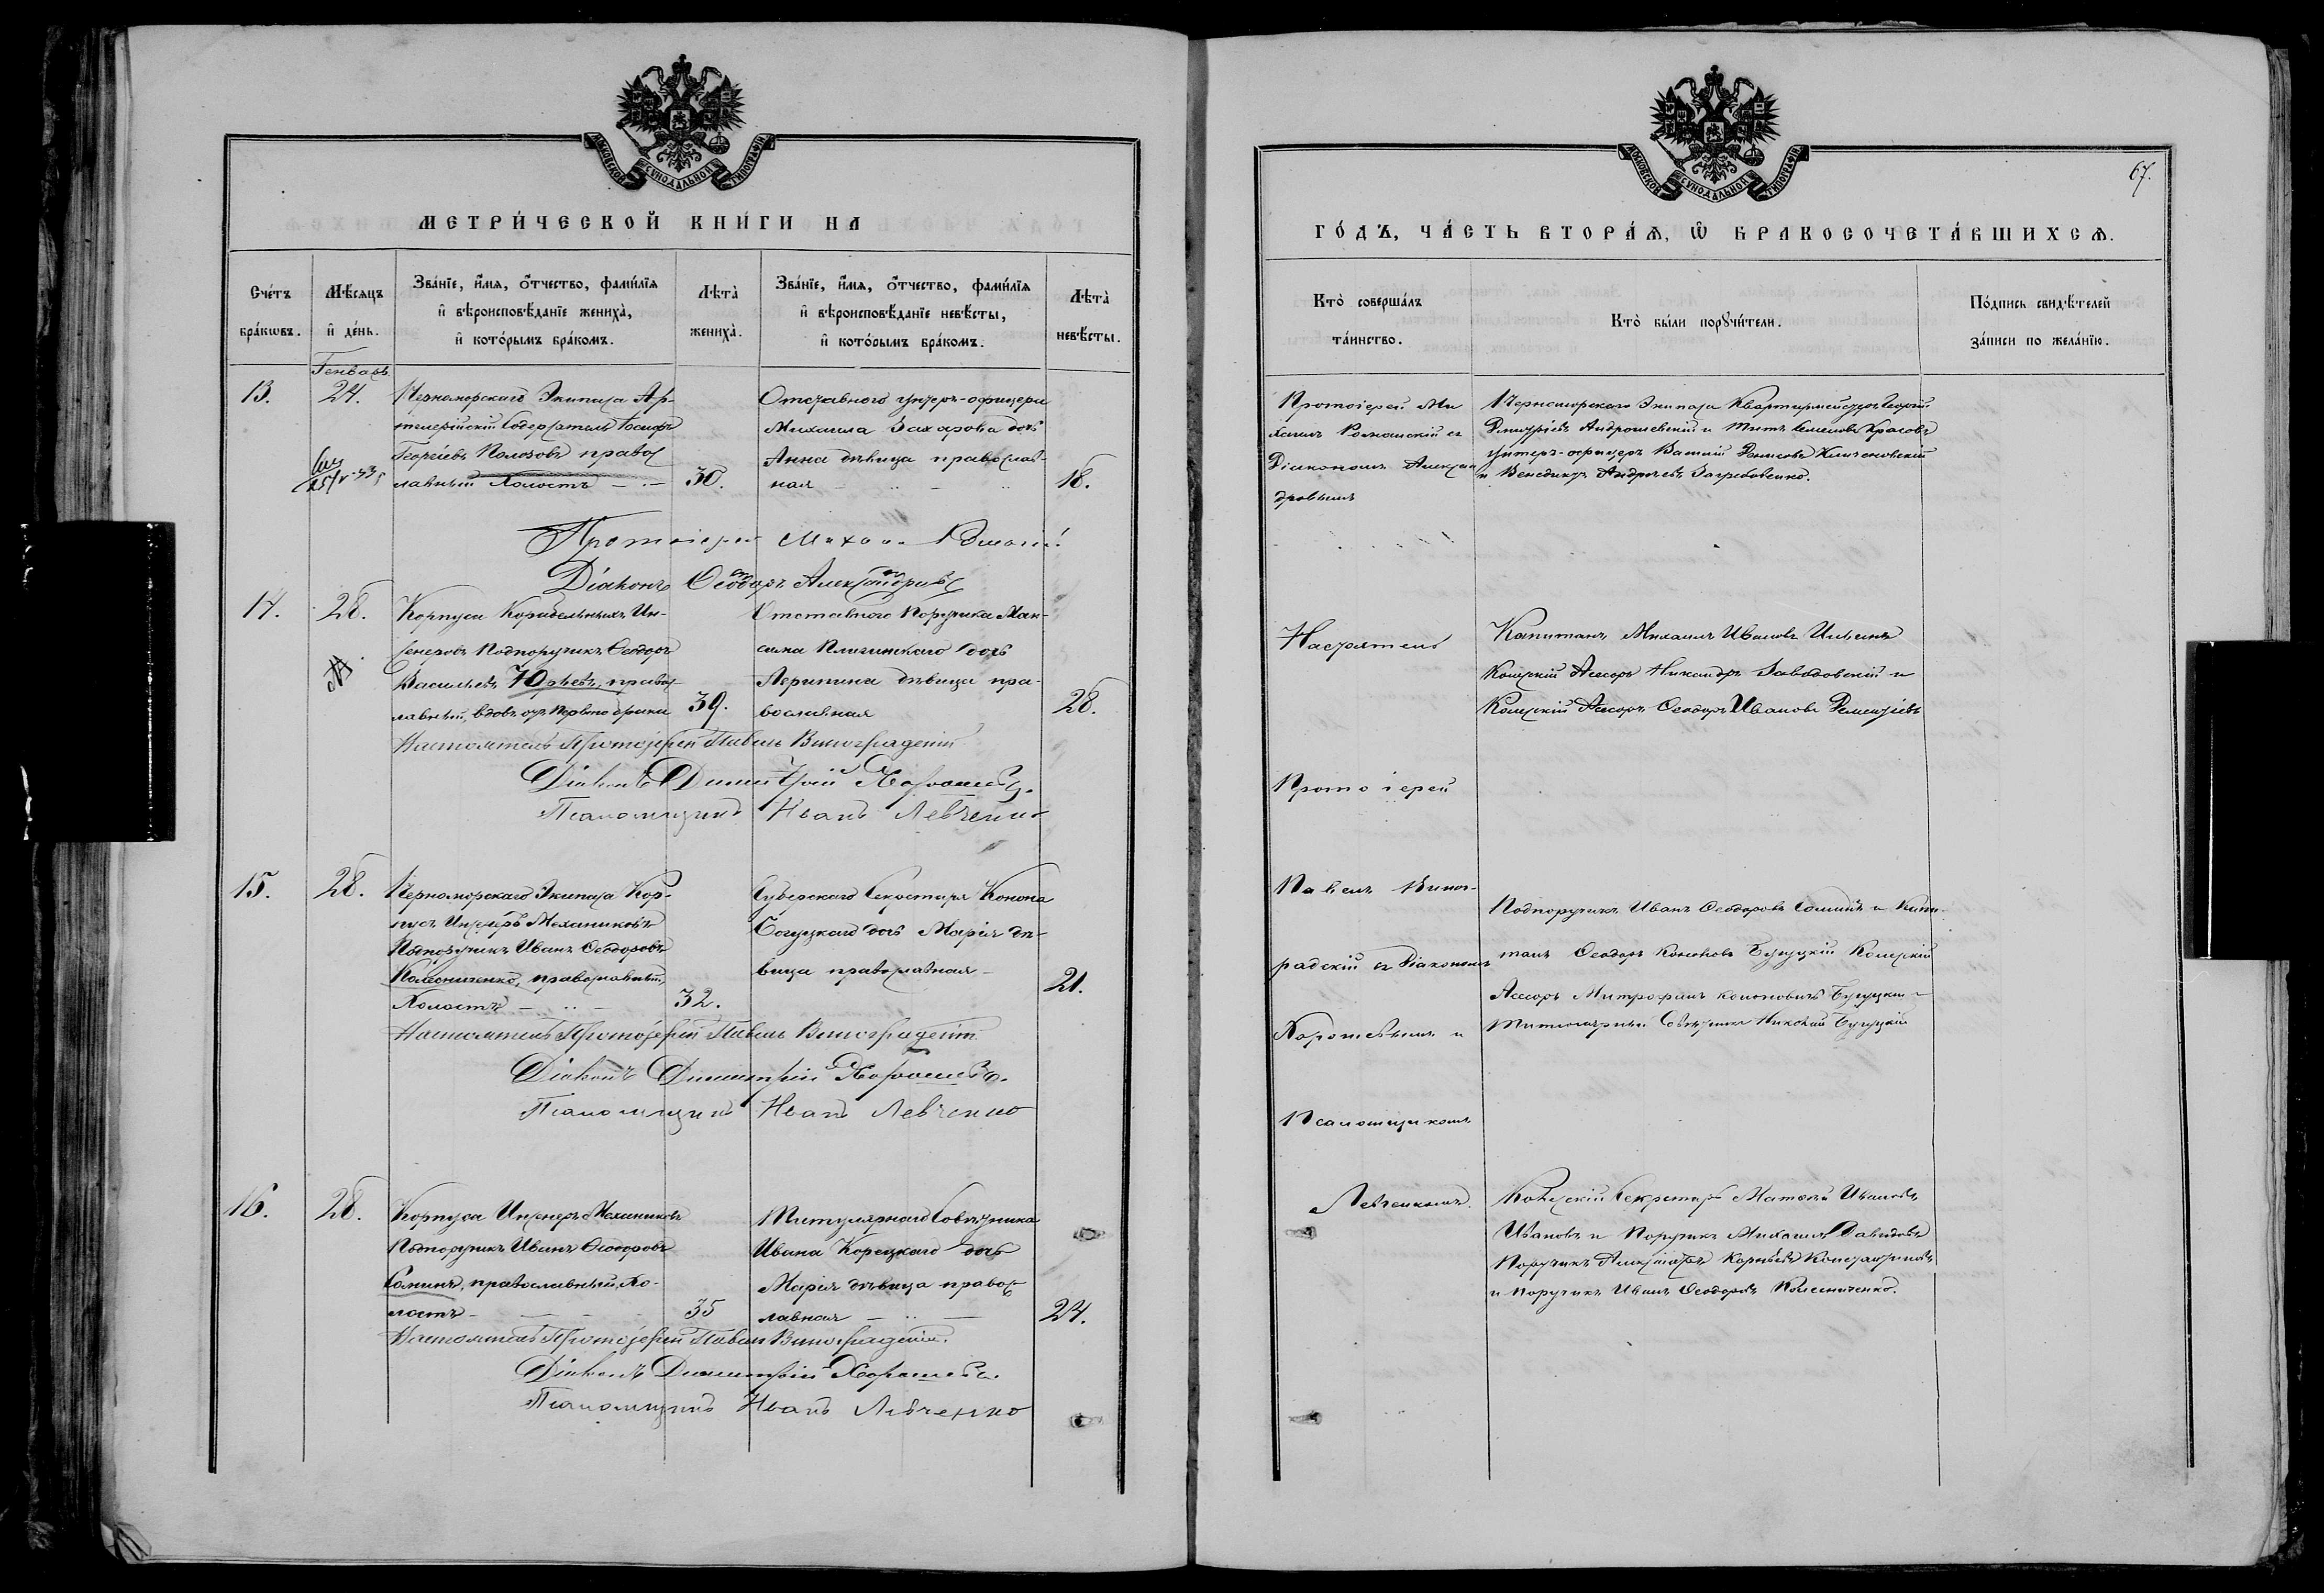 МОСКОВСКОЙ СѴНОДАЛЬНОЙ ТИПОГРАФІИ
МЕТРИ́ЧЕСКОЙ КНИ́ГИ НА
Сче́тъ бра́кωвъ.
Мѣ́сяцъ и҆ де́нь.
Зва́нїе, и҆́мя, ѻ҆́тчество, фами́лїя и҆ вѣроисповѣ́данїе жениха̀, и҆ кото́рымъ бра́комъ.
Лѣ́та жениха̀.
Зва́нїе, и҆́мя, ѻ҆́тчество, фами́лїя и҆ вѣроисповѣ́данїе невѣ́сты, и҆ кото́рымъ бра́комъ.
Лѣ́та невѣ́сты.
Генварь
13.
24.
Черноморскаго Экипажа Ар-
тилерійскій Содержатель Іосифъ
Георгіевъ Полозовъ правос
лавный Холостъ
30.
Отставного унтеръ-офицера
Михаила Захарова дочь
Анна дѣвица православ-
ная
18.
Протоіерей Михаилъ
Діаконъ Ѳеодоръ Александровъ
14.
28.
Корпуса Корабельныхъ Ин-
женеровъ Подпоручикъ Ѳеодоръ
Васильевъ Юрьевъ, правос
лавный, вдовъ отъ перваго брака
39.
Отставного Поручика Мак-
сима дочь
дѣвица пра-
вославная
28.
Настоятель Протоіерей Павелъ Виноградскій
Діаконъ Димитрій Хорошевъ.
Псаломщикъ Иванъ Левченко
15.
28.
Черноморскаго Экипажа Кор-
пуса Инженеръ Механиковъ
Подпоручикъ Иванъ Ѳеодоровъ
Колесниченко, православный,
Холостъ
32.
Губерскаго Секретаря Конона
Богуцкаго дочь Марія дѣ-
вица православная
21.
Настоятель Протоіерей Павелъ Виноградскій
Діаконъ Димитрій Хорошевъ.
Псаломщикъ Иванъ Левченко
16.
28.
Корпуса Инженеръ Механиковъ
Подпоручикъ Иванъ Ѳеодоровъ
Соминъ, православный, хо-
лостъ
35
Титулярного Совѣтника
Ивана Корецкаго дочь
Марія дѣвица правос
лавная
24.
Настоятель Протоіерей Павелъ Виноградскій.
Діаконъ Димитрій Хорошевъ.
Псаломщикъ Иванъ Левченко
МОСКОВСКОЙ СѴНОДАЛЬНОЙ ТИПОГРАФІИ
67.
ГО́ДЪ, ЧА́СТЬ ВТОРА́Я, Ѡ҆ БРАКОСОЧЕТА́ВШИХСЯ.
Кто̀ соверша́лъ та́инство.
Кто̀ бы́ли порꙋчи́тели.
По́дпись свидѣ́телей за́писи по жела́нїю.
Протоіерей Ми
хаилъ съ
Діакономъ Алексан
дровымъ
Черноморскаго Экипажа Квартирмейстръ Георгій
Дмитріевъ Андрошевскій и Титъ Семеновъ Красовъ
унтеръ-офицеръ Василій Денисовъ
и Венедиктъ Андреевъ
Настоятель
Протоіерей
Павелъ Виног-
радскій съ Діакономъ
Хорошевымъ и
Псаломщикомъ
Левченкомъ.
Капитанъ Михаилъ Ивановъ Ильинъ
Колежскій Асесоръ Никандръ Заводовскій и
Колежскій Асесоръ Ѳеодоръ Ивановъ Дементіевъ
Подпоручикъ Иванъ Ѳеодоровъ Соминъ и Капи-
танъ Ѳеодоръ Кононовъ Бугуцкій Колежскій
Асесоръ Митрофанъ Кононовичъ Бугуцкій и
Титулярный Совѣтникъ Николай Бугуцкій
Колежскій Секретарь Матвей Ивановъ
Ивановъ и Поручикъ Михаилъ Давыдовъ
Поручикъ Александръ Корнѣевъ Константиновъ
и поручикъ Иванъ Ѳеодоровъ Колесниченко.